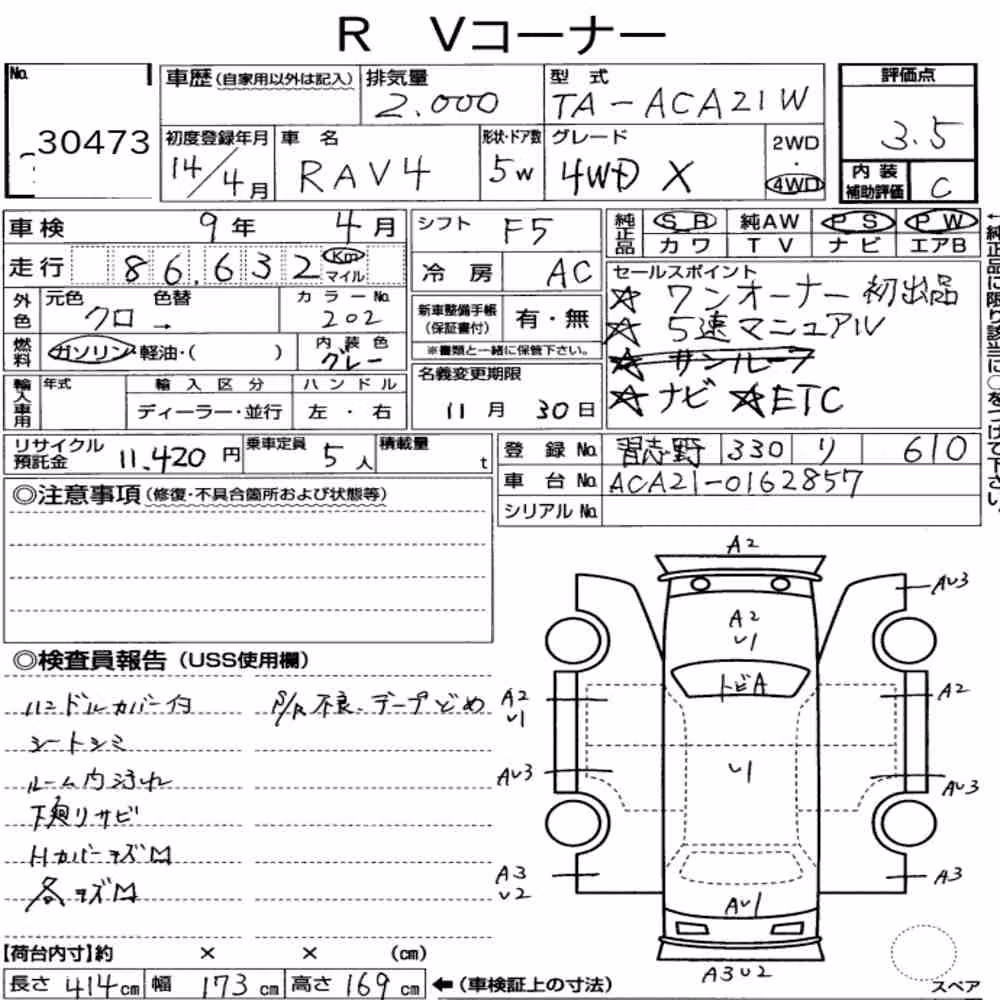 R Vコーナー
No. 30473
車歴(自家用以外は記入)
排気量 2.000
型式 TA-ACA21W
評価点 3.5
初度登録年月 14/4月
車名 RAV4
形状・ドア数 5W
グレード 4WD X
2WD・4WD
内装補助評価 C
車検 9年 4月
シフト F5
純正品 SR 純AW PS PW
カワ TV ナビ エアB
走行 86,632 Km マイル
冷房 AC
セールスポイント
☆ ワンオーナー 初出品
☆ 5速マニュアル
☆ サンルーフ
☆ ナビ ☆ETC
外色 元色 クロ → 色替 カラーNo. 202
新車整備手帳(保証書付) 有・無
※書類と一緒に保管下さい。
燃料 ガソリン・軽油・( ) 内装色 グレー
名義変更期限 11月 30日
輸入車用 年式 輸入区分 ディーラー・並行 ハンドル 左・右
←純正品に限り該当に○をつけて下さい。
リサイクル預託金 11,420円
乗車定員 5人
積載量 t
登録No. 習志野 330 リ 610
車台No. ACA21-0162857
シリアルNo.
◎注意事項(修復・不具合箇所および状態等)
◎検査員報告(USS使用欄)
ハンドルカバー付
P/R不良、テープどめ
シートシミ
ルーム内汚れ
下廻リサビ
Hカバーキズ凹
各キズ凹
A2
AU3
A2
U1
トビA
A2
U1
A2
U1
AU3
AU3
A3
U2
A3
AU1
A3U2
スペア
【荷台内寸】約 × × (cm)
長さ 414cm 幅 173cm 高さ 169cm ←(車検証上の寸法)